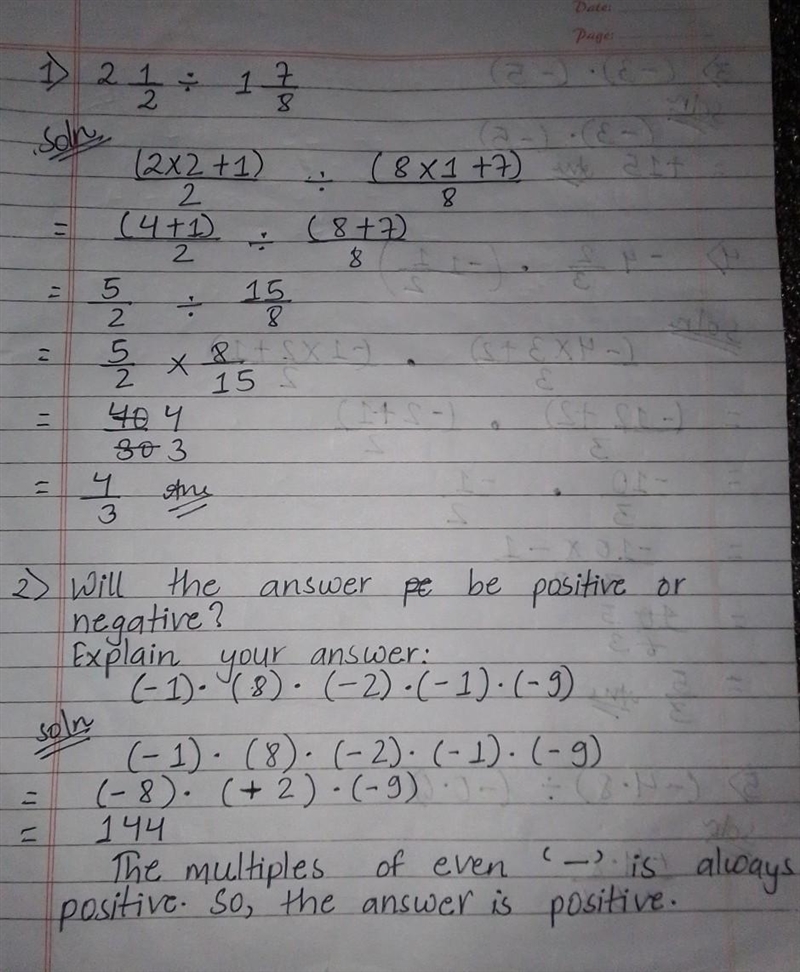 Date:
Page:
1) 2 1/2 ÷ 1 7/8
Soln
(2×2+1)/2 ÷ (8×1+7)/8
= (4+1)/2 ÷ (8+7)/8
= 5/2 ÷ 15/8
= 5/2 × 8/15
= 40 4 / 30 3
= 4/3 Ans
2) Will the answer pe be positive or
negative?
Explain your answer:
(-1)· (8)· (-2)·(-1)·(-9)
Soln
(-1)· (8)· (-2)· (-1)· (-9)
= (-8)· (+2)·(-9)
= 144
The multiples of even '-' is always
positive. So, the answer is positive.